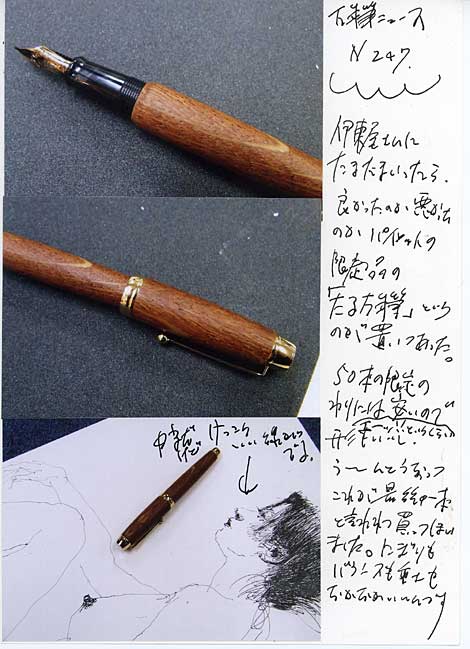 ニュース
N 247.
伊東屋さんに
たまたまいったら、
良かったのか悪かった
のかパイロットの
限定品の
「たる万年筆」という
のが置いてあった。
50本の限定の
わりには安いので
形もいいし、
う〜んとうなって
これが最後の一本
と言われ買ってしまい
ました。にぎりも
バランスも重さも
なかなかいいんです
けっこう
いい線
です。